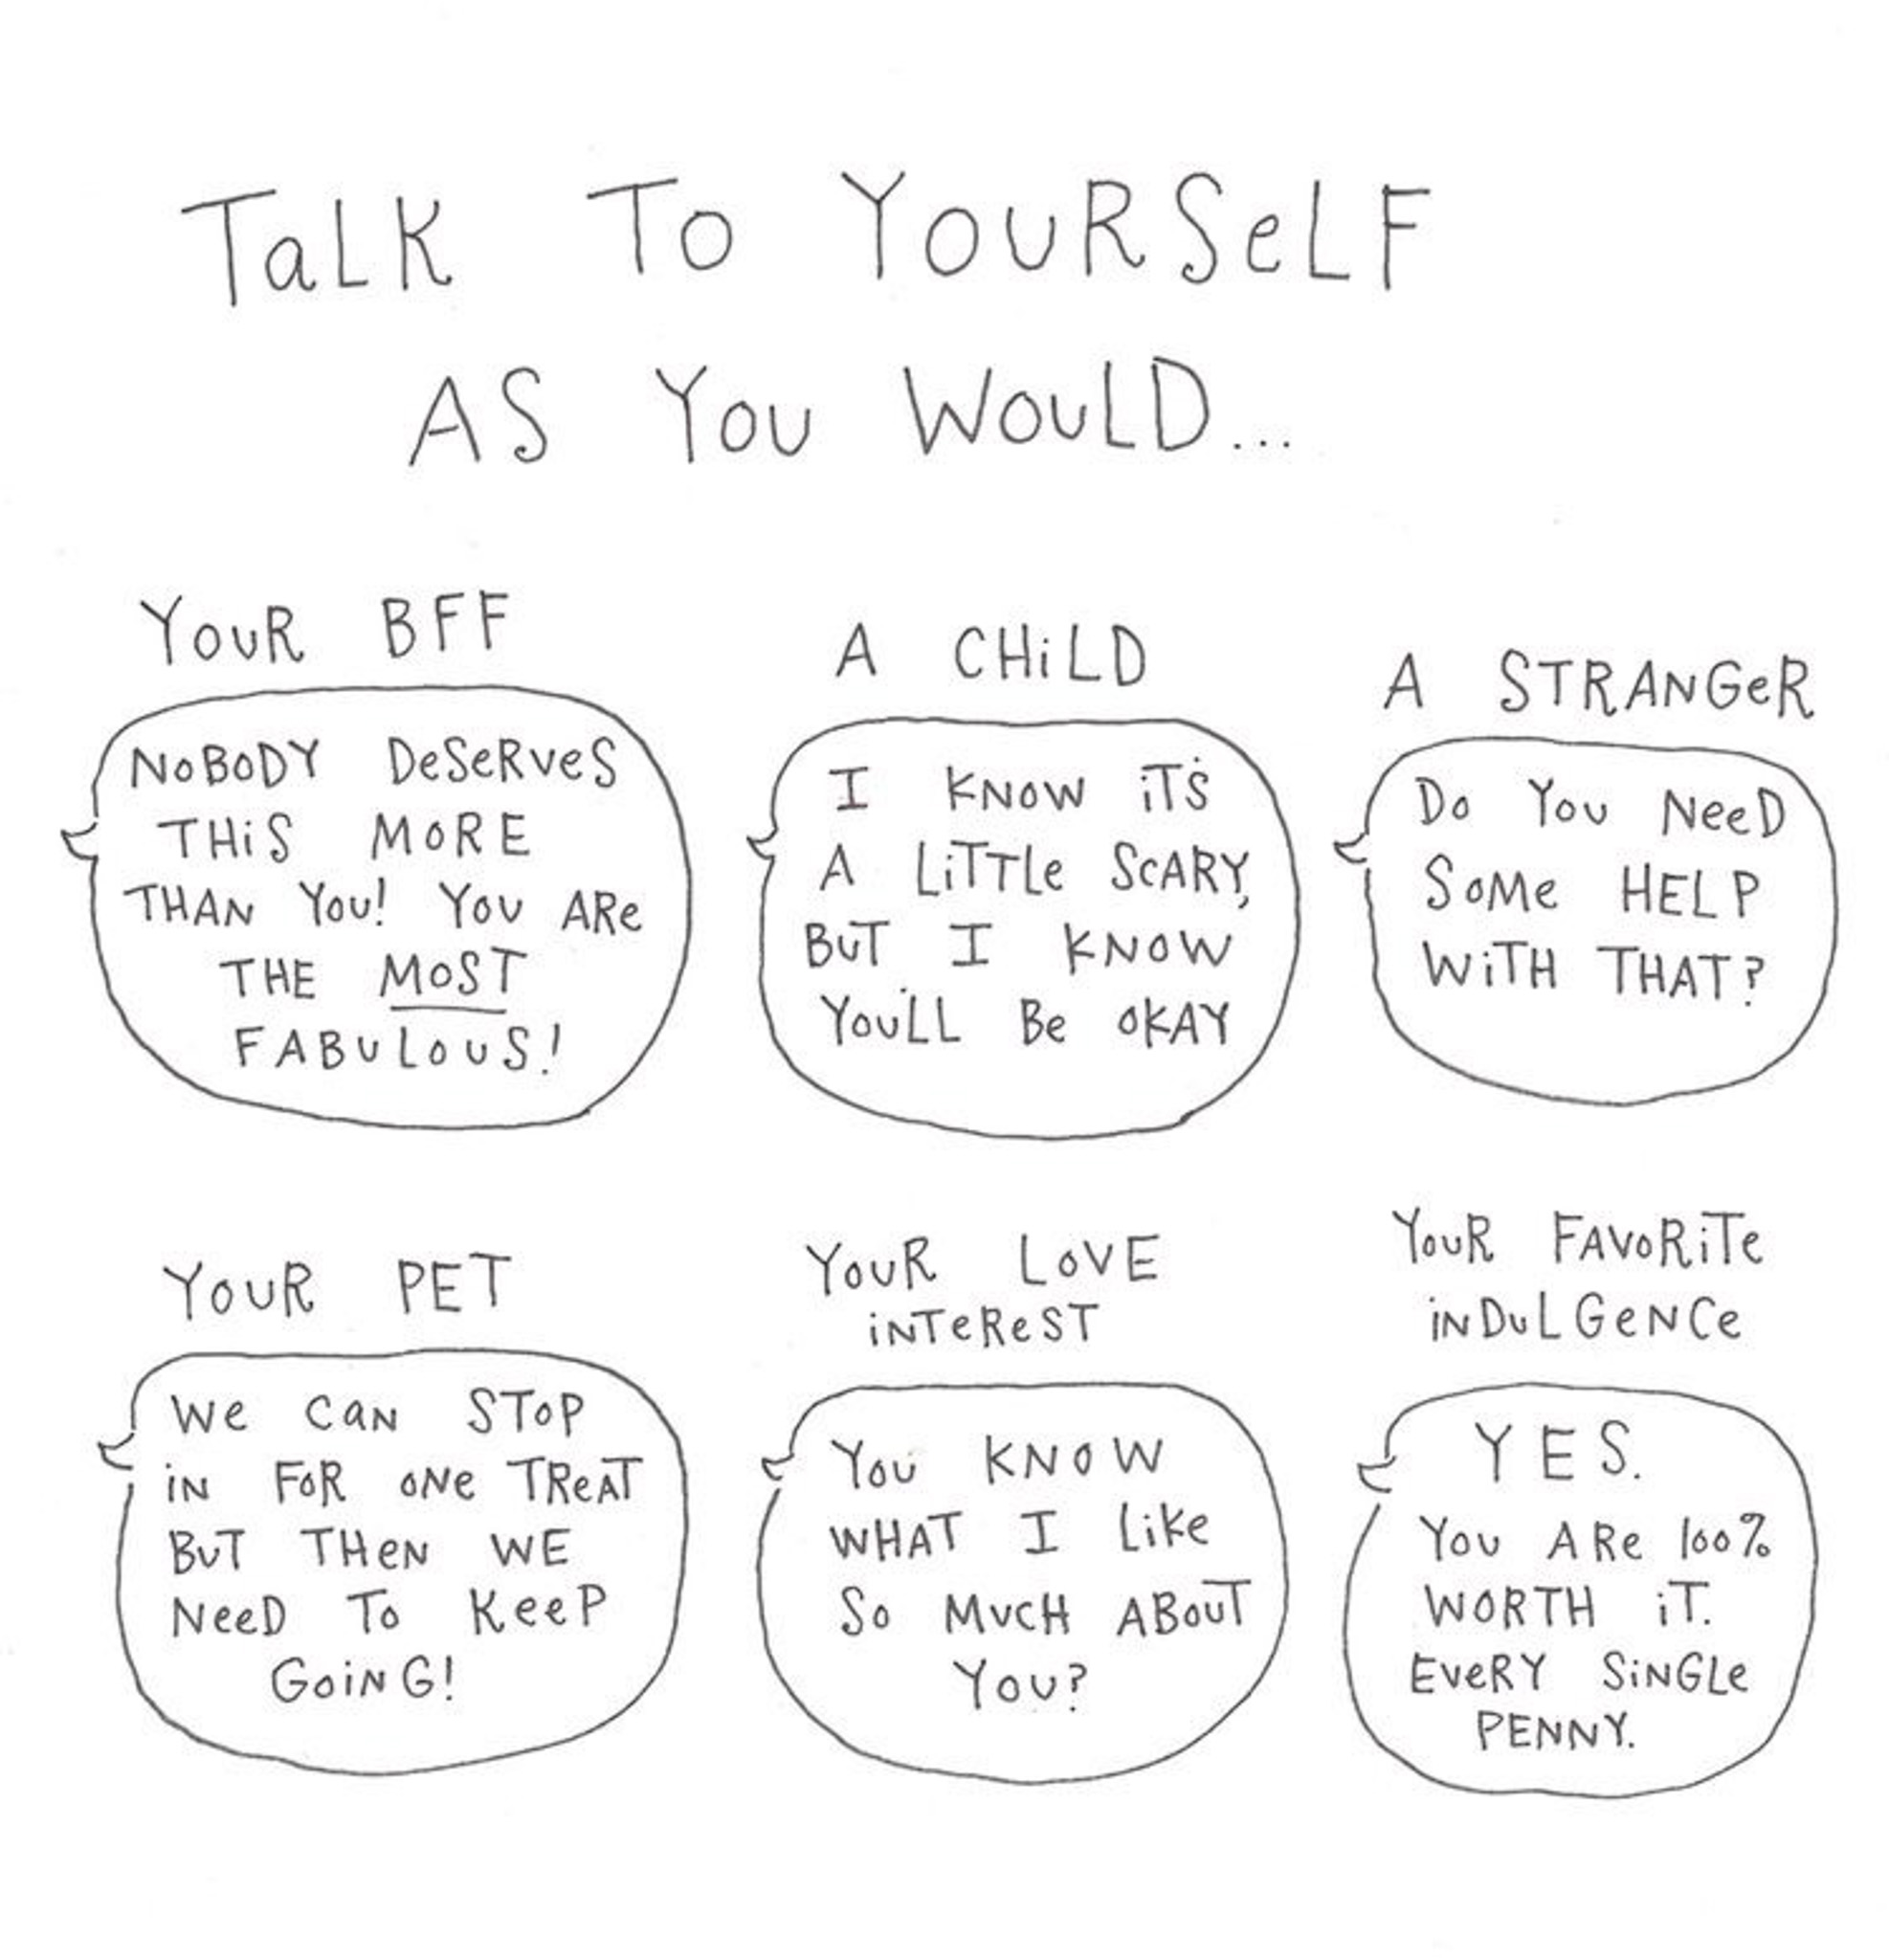 TaLK To YouRSeLF
AS You WouLD...
YouR BFF
NoBoDY DeSeRveS
THiS MoRE
THAN You! You ARe
THE MoST
FABuLouS!
A CHiLD
I KNoW iT'S
A LiTTLe ScARY,
BuT I KNoW
You'LL Be oKAY
A STRANGeR
Do You NeeD
SoMe HELP
WiTH THAT?
YouR PET
We CaN SToP
iN FoR oNe TReAT
BuT THeN WE
NeeD To KeeP
GoiNG!
YouR LoVE
iNTeReST
You KNoW
WHAT I Like
So MucH ABouT
You?
YouR FAVoRiTe
iNDuLGeNCe
YES.
You ARe 100%
WoRTH iT.
EveRY SiNGLe
PENNY.